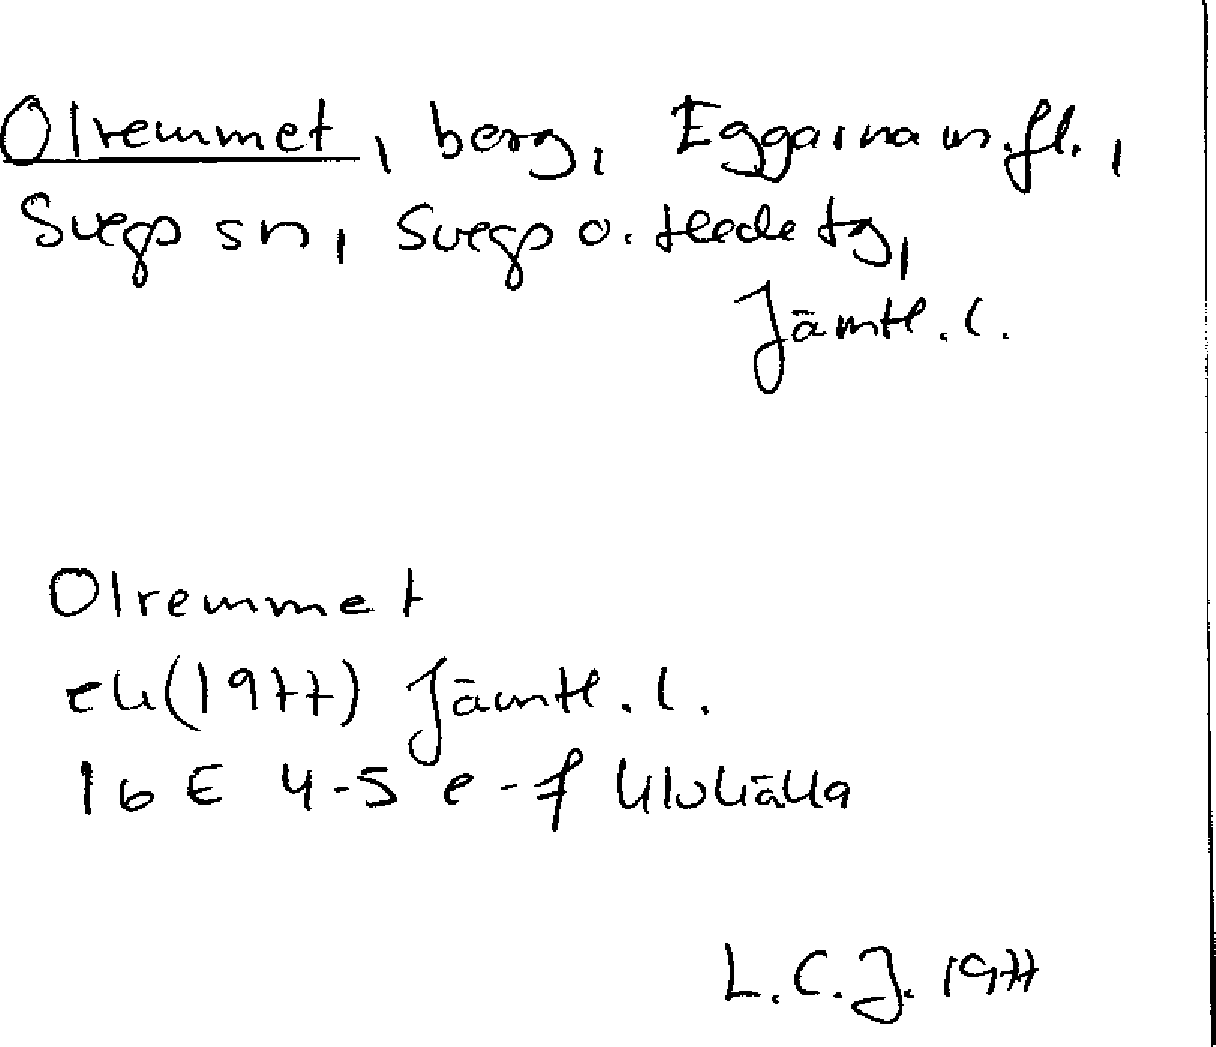 Olremmet, berg, Eggarna m.fl.,
Svegs sn, Svegs o. Hede tg,
Jämtl. l.
Olremmet
ek (1977) Jämtl. l.
16 E 4-5 e-f Ulvkälla
L.C.J. 1977